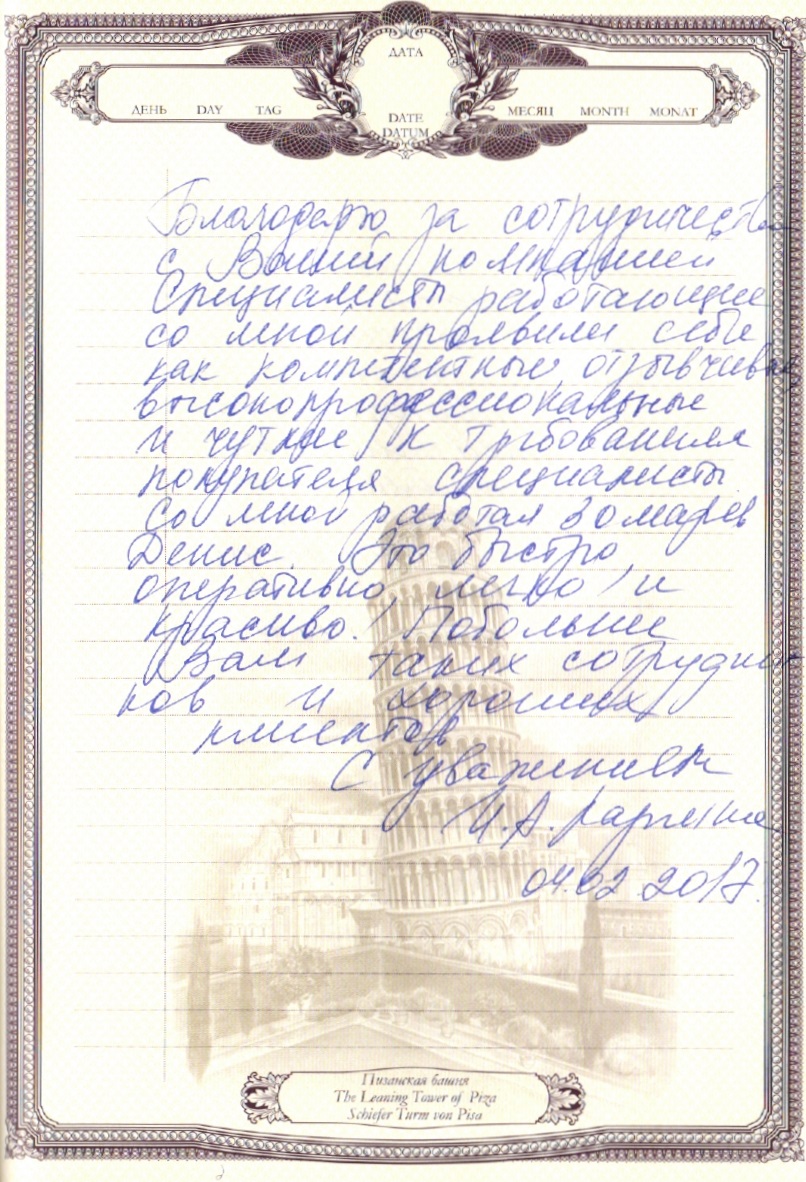 ДАТА
ДЕНЬ DAY TAG DATE МЕСЯЦ MONTH MONAT
DATUM
Благодарю за сотрудничество
с Вашей компанией
Специалисты работающие
со мной проявили себя
как компетентные, отзывчивые,
высокопрофессиональные
и чуткие к требованиям
покупателя специалисты
Со мной работал
Денис. Это быстро,
оперативно, легко и
красиво! Побольше
Вам таких сотрудни
ков и хороших
клиентов
С уважением
И.А.
04.02 2017.
Пизанская башня
The Leaning Tower of Piza
Schiefer Turm von Pisa